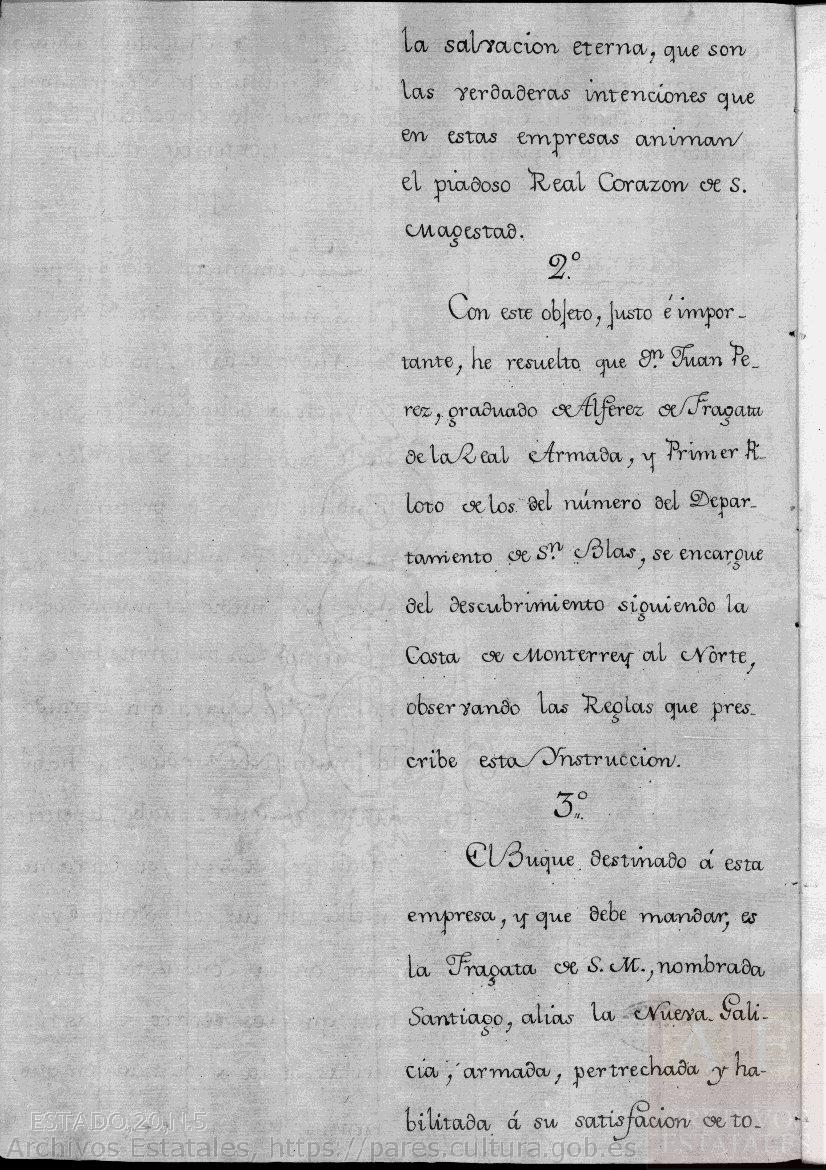 la salvacion eterna, que son
las verdaderas intenciones que
en estas empresas animan
el piadoso Real Corazon de S.
Magestad.
2.º
Con este objeto, justo é impor-
tante, he resuelto que Dn. Juan Pe-
rez, graduado de Alferez de Fragata
de la Real Armada, y Primer Pi-
loto de los del número del Depar-
tamiento de Sn. Blas, se encargue
del descubrimiento siguiendo la
Costa de Monterrey al Norte,
observando las Reglas que pres-
cribe esta Ynstruccion.
3.º
El Buque destinado á esta
empresa, y que debe mandar, es
la Fragata de S. M., nombrada
Santiago, alias la Nueva Gali-
cia, armada, pertrechada y ha-
bilitada á su satisfacion de to-
ESTADO,20,N.5
Archivos Estatales, https://pares.cultura.gob.es
AE
ARCHIVOS
ESTATALES